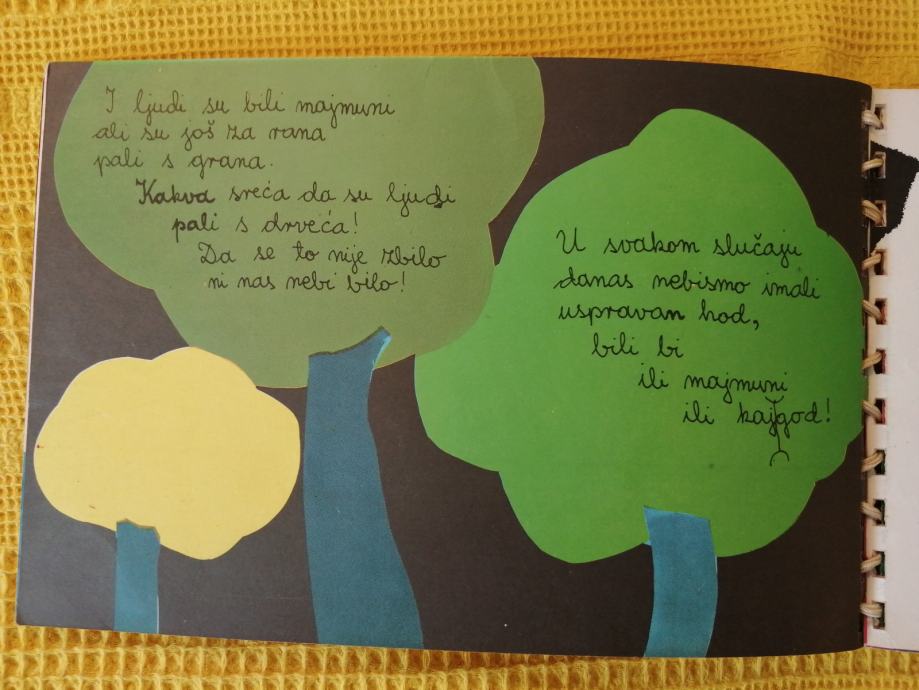 I ljudi su bili majmuni
ali su još za rana
pali s grana.
Kakva sreća da su ljudi
pali s drveća!
Da se to nije zbilo
ni nas nebi bilo!
U svakom slučaju
danas nebismo imali
uspravan hod,
bili bi
ili majmuni
ili kajgod!